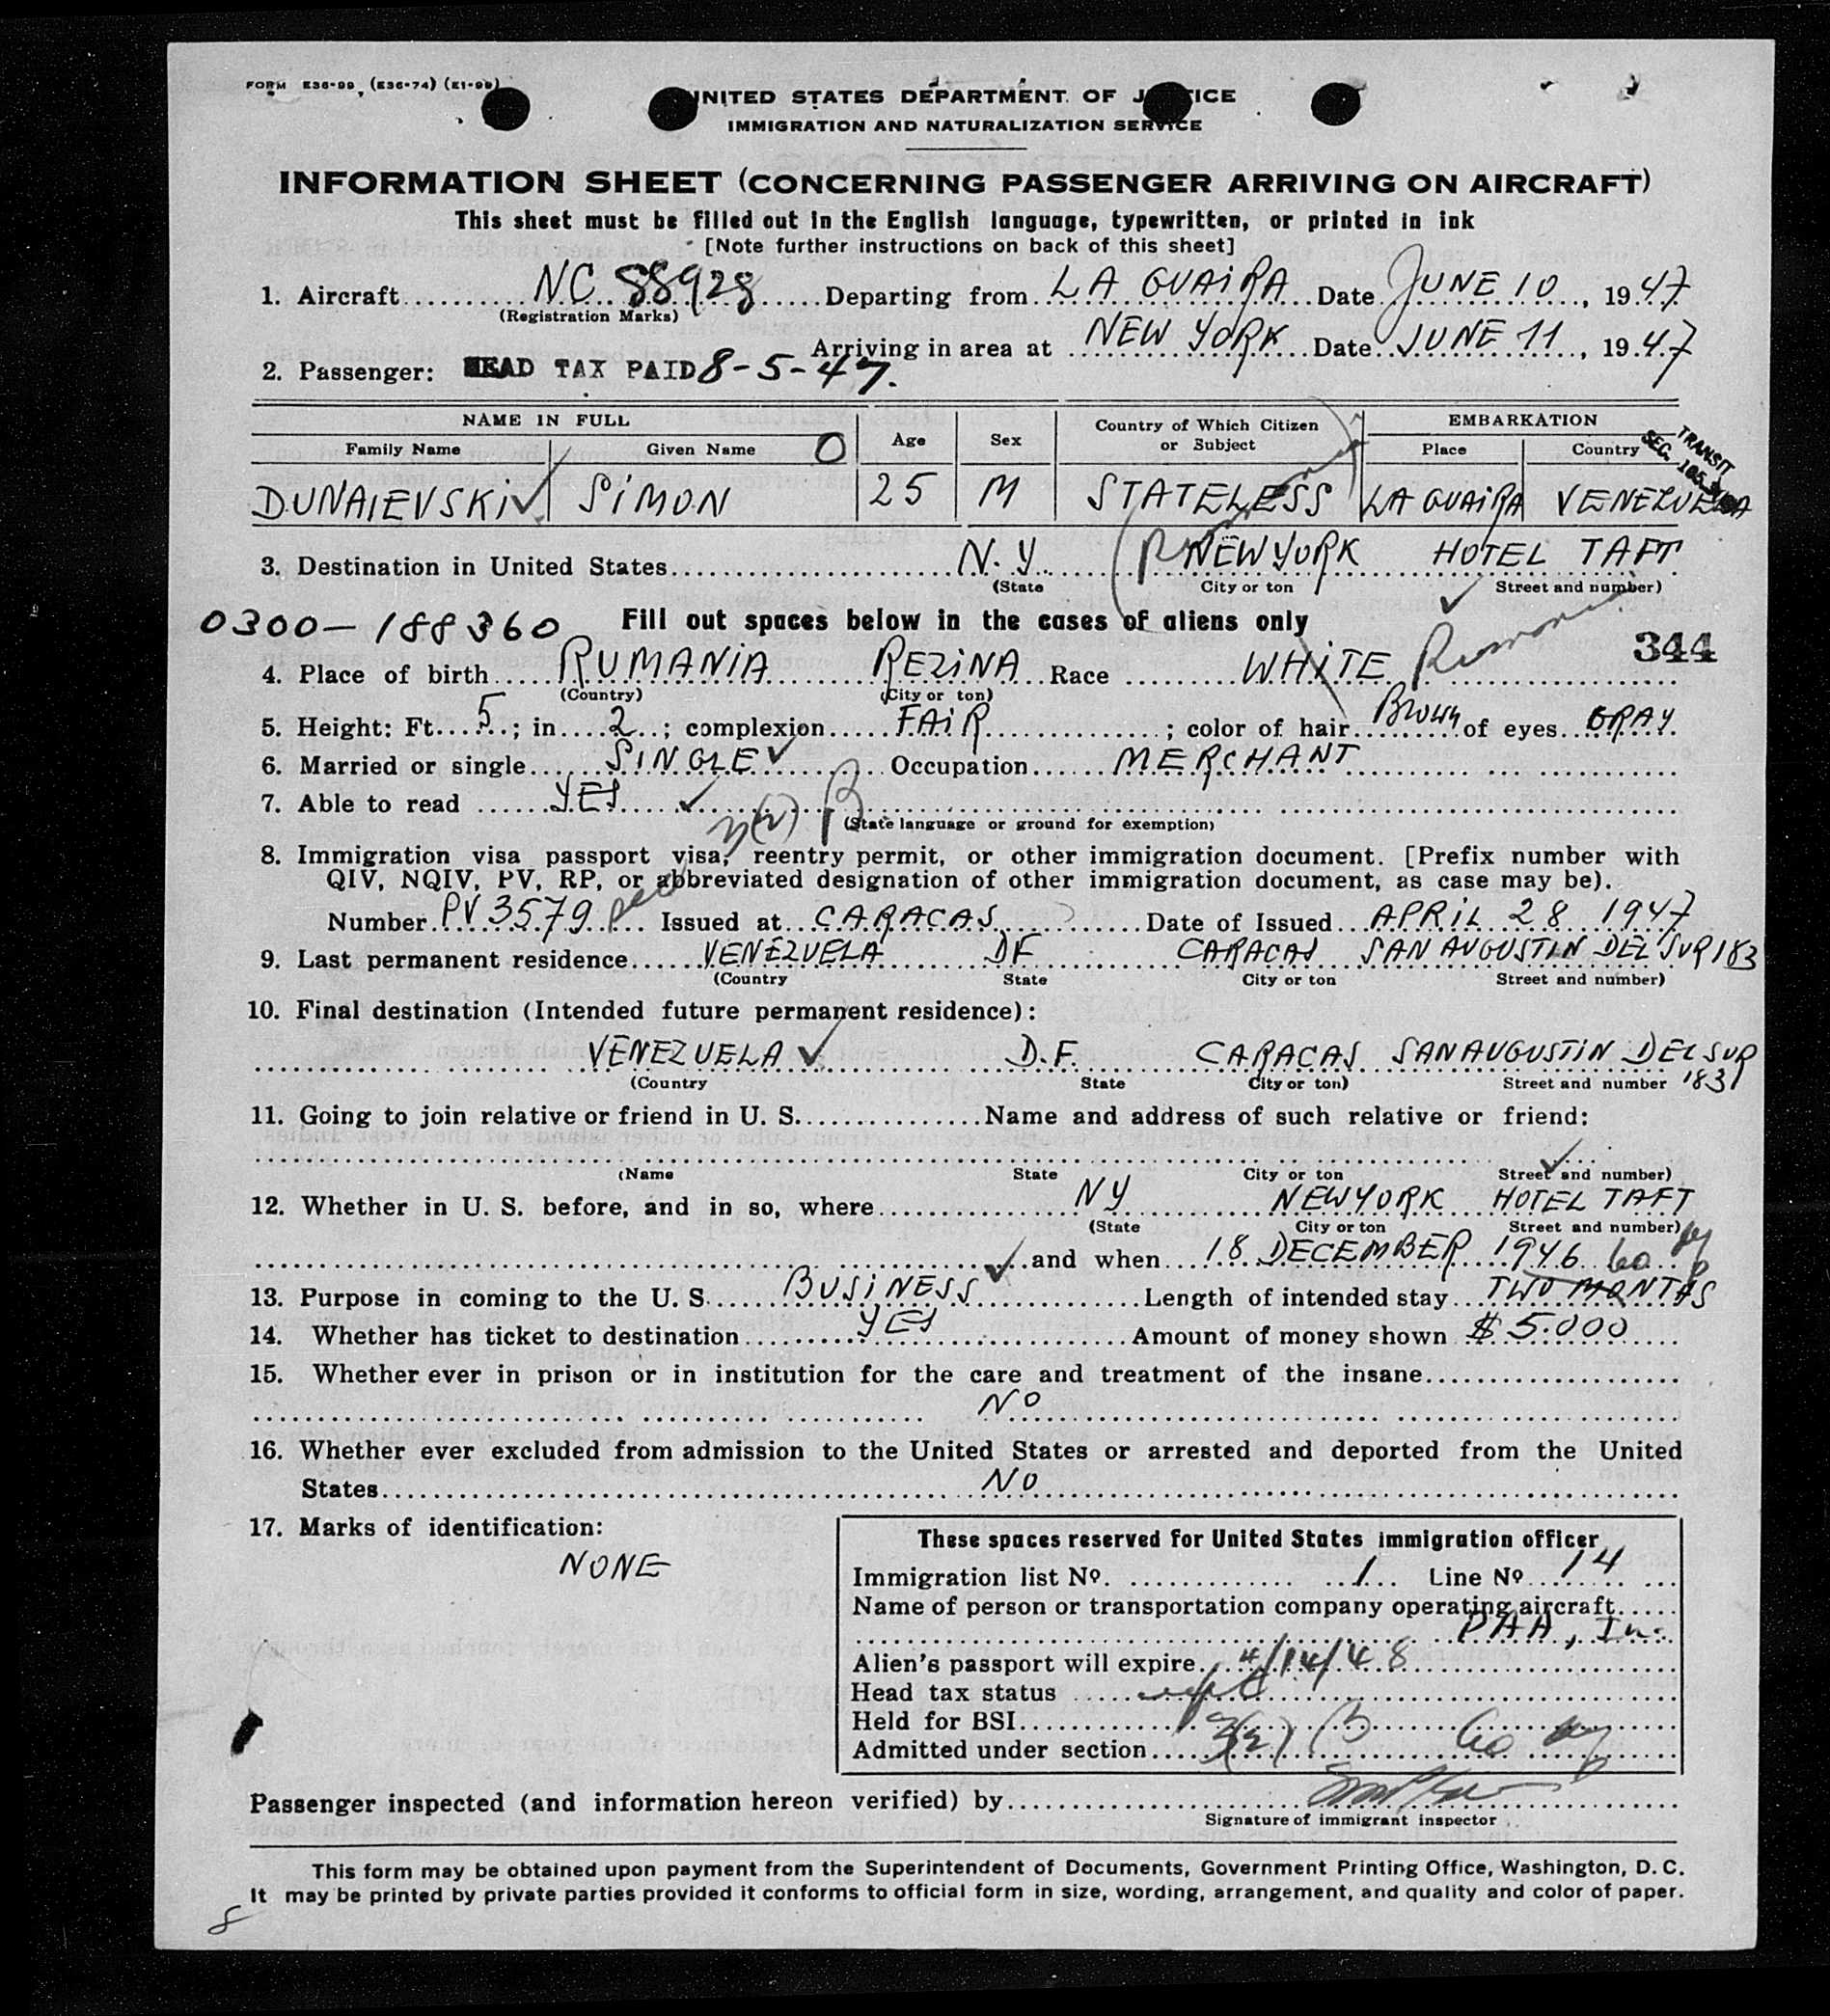 FORM E36-99 (E36-74) (E1-99)
UNITED STATES DEPARTMENT OF JUSTICE
IMMIGRATION AND NATURALIZATION SERVICE
INFORMATION SHEET (CONCERNING PASSENGER ARRIVING ON AIRCRAFT)
This sheet must be filled out in the English language, typewritten, or printed in ink
[Note further instructions on back of this sheet]
1. Aircraft NC 88928 Departing from LA GUAiRA Date JUNE 10, 19 47
(Registration Marks)
Arriving in area at NEW YORK Date JUNE 11, 19 47
2. Passenger: HEAD TAX PAID 8-5-47.
NAME IN FULL Age Sex Country of Which Citizen or Subject EMBARKATION
Family Name Given Name O Place Country
TRANSIT
SEC.
DUNAIEVSKi SiMON 25 M STATELESS LA GUAiRA VENEZUELA
3. Destination in United States N.Y. NEW YORK HOTEL TAFT
(State City or ton Street and number)
0300-188360 Fill out spaces below in the cases of aliens only
344
4. Place of birth RUMANiA REZiNA Race WHiTE
(Country) (City or ton)
5. Height: Ft. 5; in 2; complexion FAiR; color of hair Brown of eyes GRAY.
6. Married or single SiNGLE Occupation MERCHANT
7. Able to read YES
3(2) B
(State language or ground for exemption)
8. Immigration visa passport visa, reentry permit, or other immigration document. [Prefix number with
QIV, NQIV, PV, RP, or abbreviated designation of other immigration document, as case may be).
Number PV 3579 Issued at CARACAS Date of Issued APRiL 28 1947
9. Last permanent residence VENEZUELA DF CARACAS SAN AUGUSTIN DEL SUR 183
(Country State City or ton Street and number)
10. Final destination (Intended future permanent residence):
VENEZUELA D.F. CARACAS SAN AUGUSTiN DEL SUR
(Country State City or ton) Street and number 183
11. Going to join relative or friend in U. S. Name and address of such relative or friend:
(Name State City or ton Street and number)
12. Whether in U. S. before, and in so, where NY NEW YORK HOTEL TAFT
(State City or ton Street and number)
and when 18 DECEMBER 1946
13. Purpose in coming to the U. S. BUSiNESS Length of intended stay TWO MONTHS
14. Whether has ticket to destination YES Amount of money shown $ 5.000
15. Whether ever in prison or in institution for the care and treatment of the insane
NO
16. Whether ever excluded from admission to the United States or arrested and deported from the United
States NO
17. Marks of identification:
NONE
These spaces reserved for United States immigration officer
Immigration list No. 1 Line No 14
Name of person or transportation company operating aircraft
PAA, Inc.
Alien's passport will expire 4/14/48
Head tax status
Held for BSI
Admitted under section 3(2) B
Passenger inspected (and information hereon verified) by
Signature of immigrant inspector
This form may be obtained upon payment from the Superintendent of Documents, Government Printing Office, Washington, D. C.
It may be printed by private parties provided it conforms to official form in size, wording, arrangement, and quality and color of paper.
8